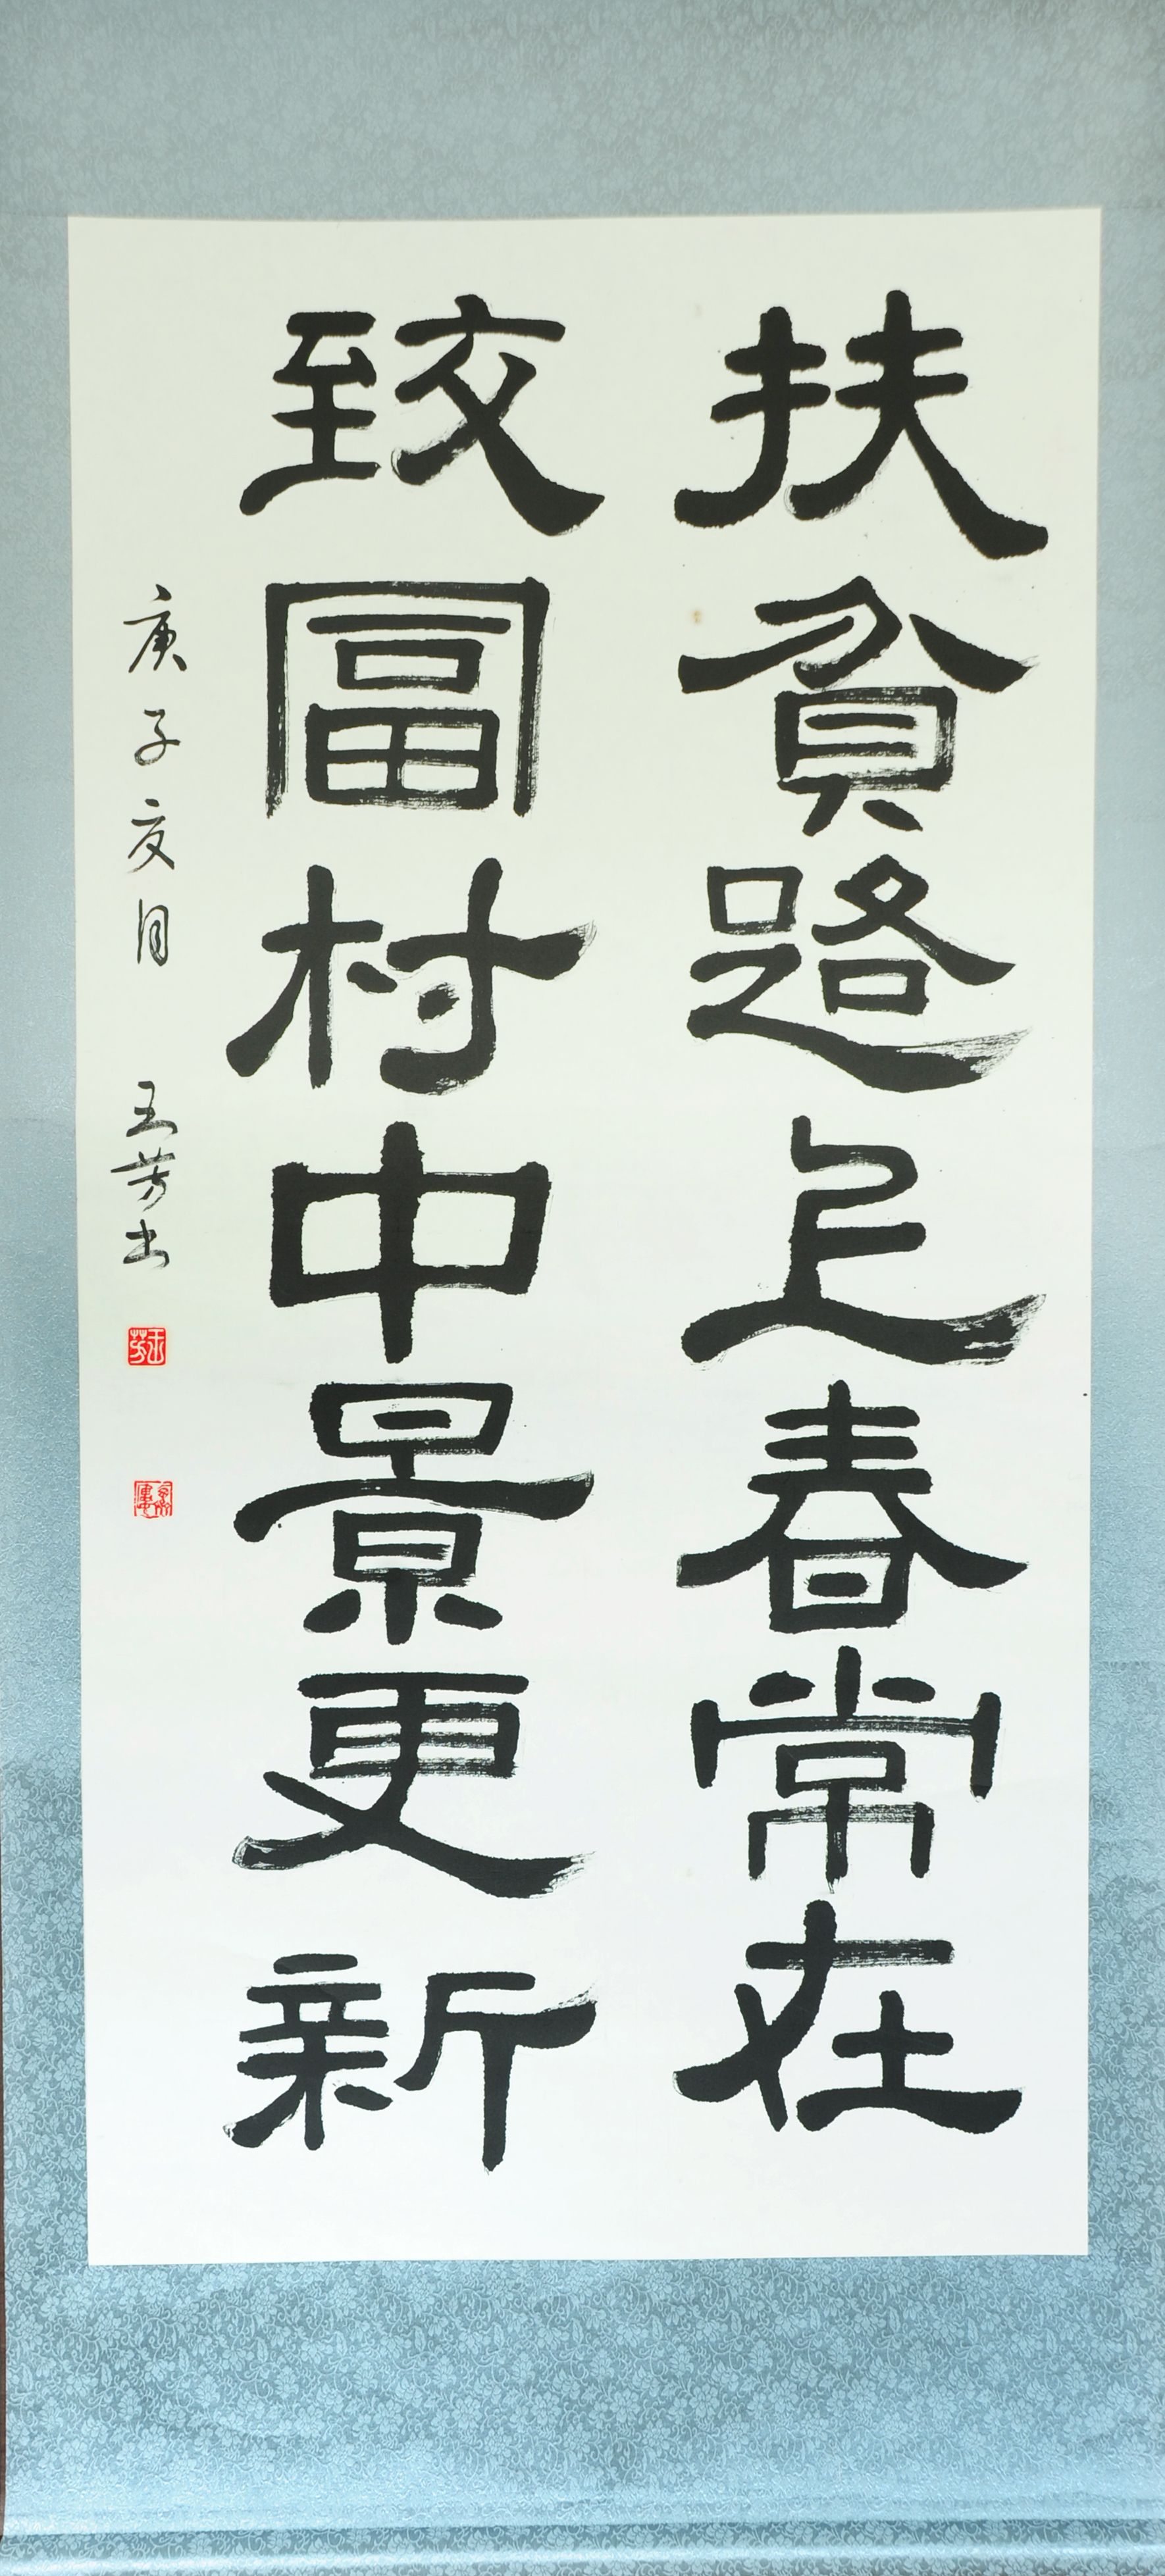 扶貧路上春常在
致富村中景更新
庚子夏月 玉芳书